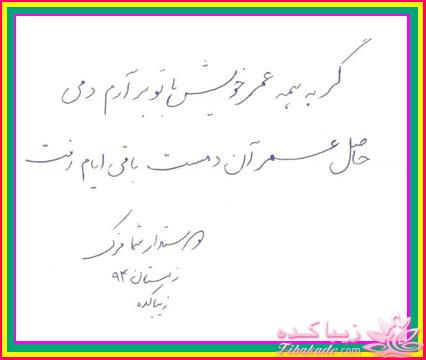 گر به همه عمر خویش با تو بر آرم دمی
حاصل عمر آن دمست باقی ایام رفت
دوستدار شما فرک
زمستان ۹۴
زیباکده
زیباکده
Zibakade.com